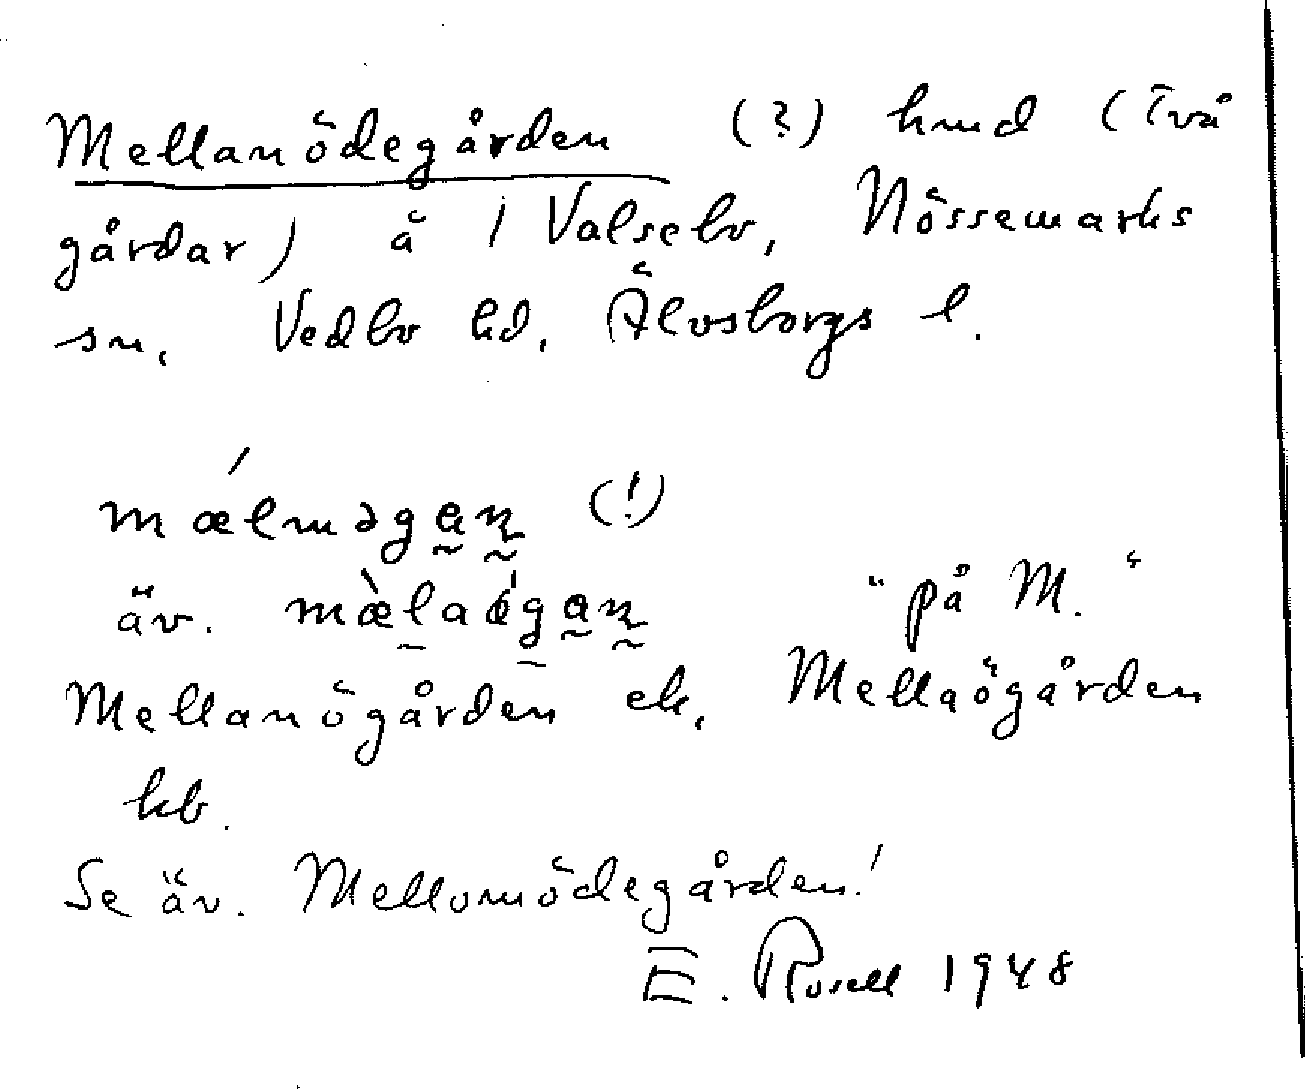 Mellanödegården (?) hmd (två
gårdar) å 1 Valsebo, Nössemarks
sn, Vedbo hd, Älvsborgs l.
mǽlməgan̥ (!)
äv. mæ̀laǿgan̥ "på M."
Mellanögården el., Mellaögården
kb.
Se äv. Mellomödegården!
E. Rosell 1948